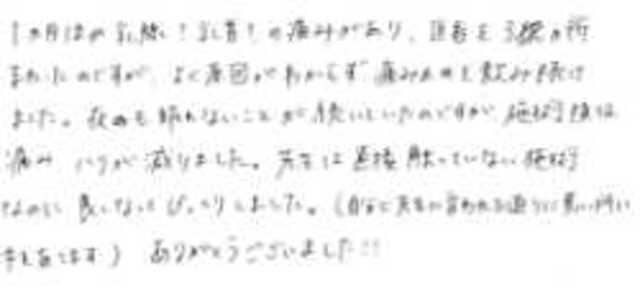 1ヵ月ほぼ乳腺!乳首!の痛みがあり、医者を3
まわったのですが、よく原因がわからず痛み止めを飲み続け
ました。夜中も眠れないことが続いていたのですが、施術後は
痛み ハリが減りました。先生は直接触っていない施術
なのに良くなってびっくりしました。(自分で先生に言われる通りに悪い所に
手を当てます) ありがとうございました!!